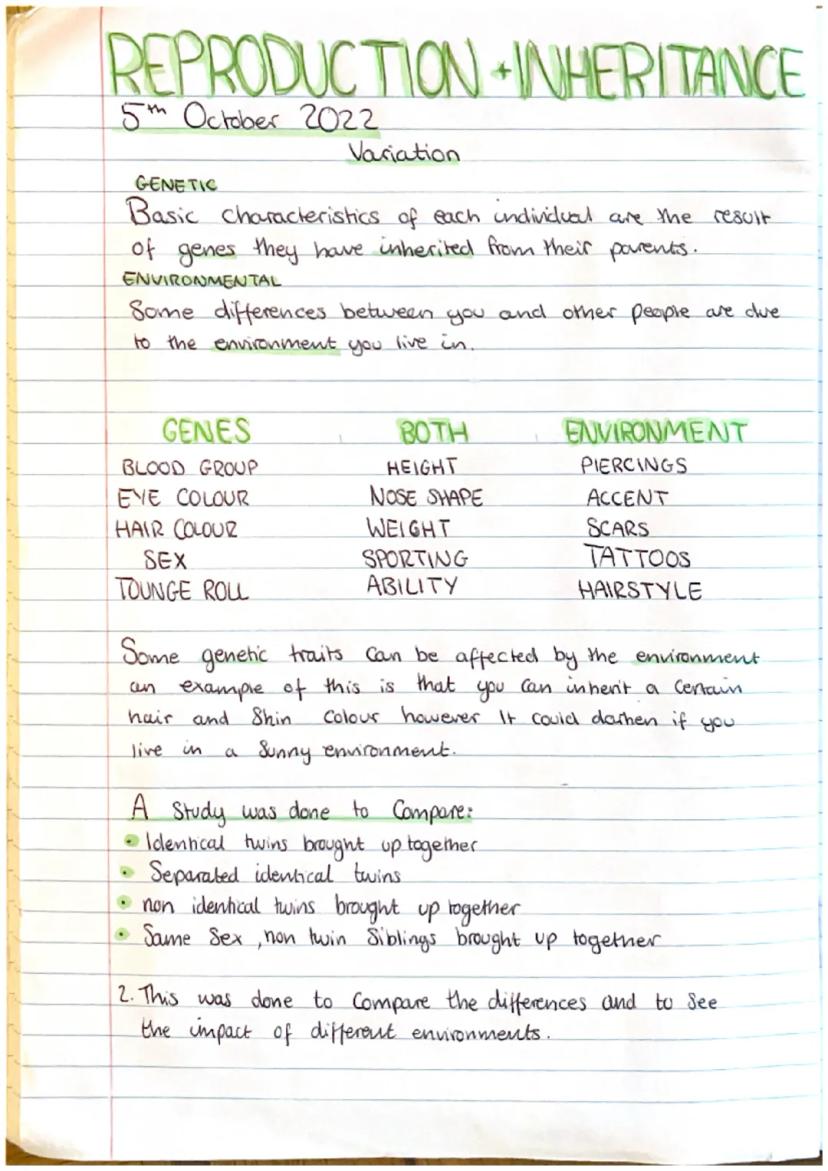 REPRODUCTION + INHERITANCE
5th October 2022
Variation
GENETIC
Basic characteristics of each individual are the result
of genes they have inherited from their parents.
ENVIRONMENTAL
Some differences between you and other people are due
to the environment you live in.
GENES BOTH ENVIRONMENT
BLOOD GROUP HEIGHT PIERCINGS
EYE COLOUR NOSE SHAPE ACCENT
HAIR COLOUR WEIGHT SCARS
SEX SPORTING TATTOOS
TOUNGE ROLL ABILITY HAIRSTYLE
Some genetic traits can be affected by the environment
an example of this is that you can inherit a certain
hair and skin colour however it could darken if you
live in a sunny environment.
A study was done to compare:
• Identical twins brought up together
• Separated identical twins
• non identical twins brought up together
• Same sex, non twin siblings brought up together
2. This was done to compare the differences and to see
the impact of different environments.